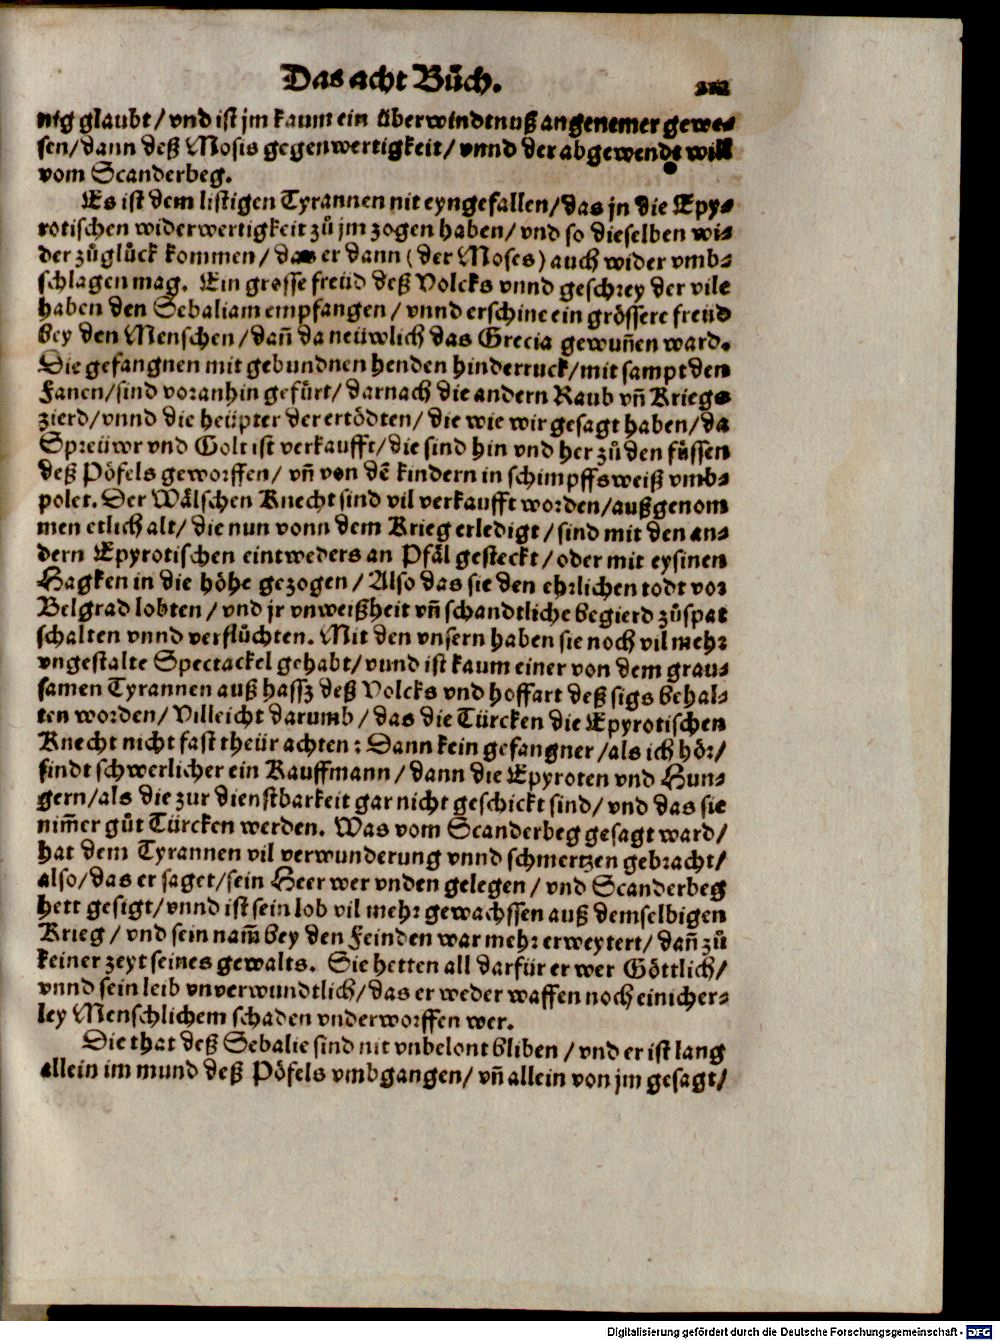 Das acht Bůch. 212
nig glaubt/ vnd ist jm kaum ein überwindtnuß angenemer gewe-
sen/ dann deß Mosis gegenwertigkeit/ vnnd der abgewendt will
vom Scanderbeg.
Es ist dem listigen Tyrannen nit eyngefallen/ das jn die Epy-
rotischen widerwertigkeit zů jm zogen haben/ vnd so dieselben wi-
der zů glück kommen/ das er dann (der Moses) auch wider vmb-
schlagen mag. Ein grosse freüd deß Volcks vnnd geschrey der vile
haben den Sebaliam empfangen/ vnnd erschine ein grössere freüd
bey den Menschen/ dañ da neüwlich das Grecia gewuñen ward.
Die gefangnen mit gebundnen henden hinderruck/ mit sampt den
Fanen/ sind voranhin gefürt/ darnach die andern Raub vñ Kriegs
zierd/ vnnd die heüpter der ertödten/ die wie wir gesagt haben/ da
Spreüwr vnd Golt ist verkaufft/ die sind hin vnd her zů den füssen
deß Pöfels geworffen/ vñ von dẽ kindern in schimpffsweiß vmb-
polet. Der Wälschen Knecht sind vil verkaufft worden/ außgenom
men etlich alt/ die nun vonn dem Krieg erledigt/ sind mit den an-
dern Epyrotischen eintweders an Pfäl gesteckt/ oder mit eysinen
Hagken in die höhe gezogen/ Also das sie den ehrlichen todt vor
Belgrad lobten/ vnd jr vnweißheit vñ schandtliche begierd zůspat
schalten vnnd verflüchten. Mit den vnsern haben sie noch vil mehr
vngestalte Spectackel gehabt/ vnnd ist kaum einer von dem grau-
samen Tyrannen auß hassz deß Volcks vnd hoffart deß sigs behal-
ten worden/ Villeicht darumb/ das die Türcken die Epyrotischen
Knecht nicht fast theür achten: Dann kein gefangner/ als ich hör/
findt schwerlicher ein Kauffmann/ dann die Epyroten vnd Hun-
gern/ als die zur dienstbarkeit gar nicht geschickt sind/ vnd das sie
nim̃er gůt Türcken werden. Was vom Scanderbeg gesagt ward/
hat dem Tyrannen vil verwunderung vnnd schmertzen gebracht/
also/ das er saget/ sein Heer wer vnden gelegen/ vnd Scanderbeg
hett gesigt/ vnnd ist sein lob vil mehr gewachssen auß demselbigen
Krieg/ vnd sein nam̃ bey den Feinden war mehr erweytert/ dañ zů
keiner zeyt seines gewalts. Sie hetten all darfür er wer Göttlich/
vnnd sein leib vnverwundtlich/ das er weder waffen noch einicher-
ley Menschlichem schaden vnderworffen wer.
Die that deß Sebalie sind nit vnbelont bliben/ vnd er ist lang
allein im mund deß Pöfels vmbgangen/ vñ allein von jm gesagt/
Digitalisierung gefördert durch die Deutsche Forschungsgemeinschaft - DFG